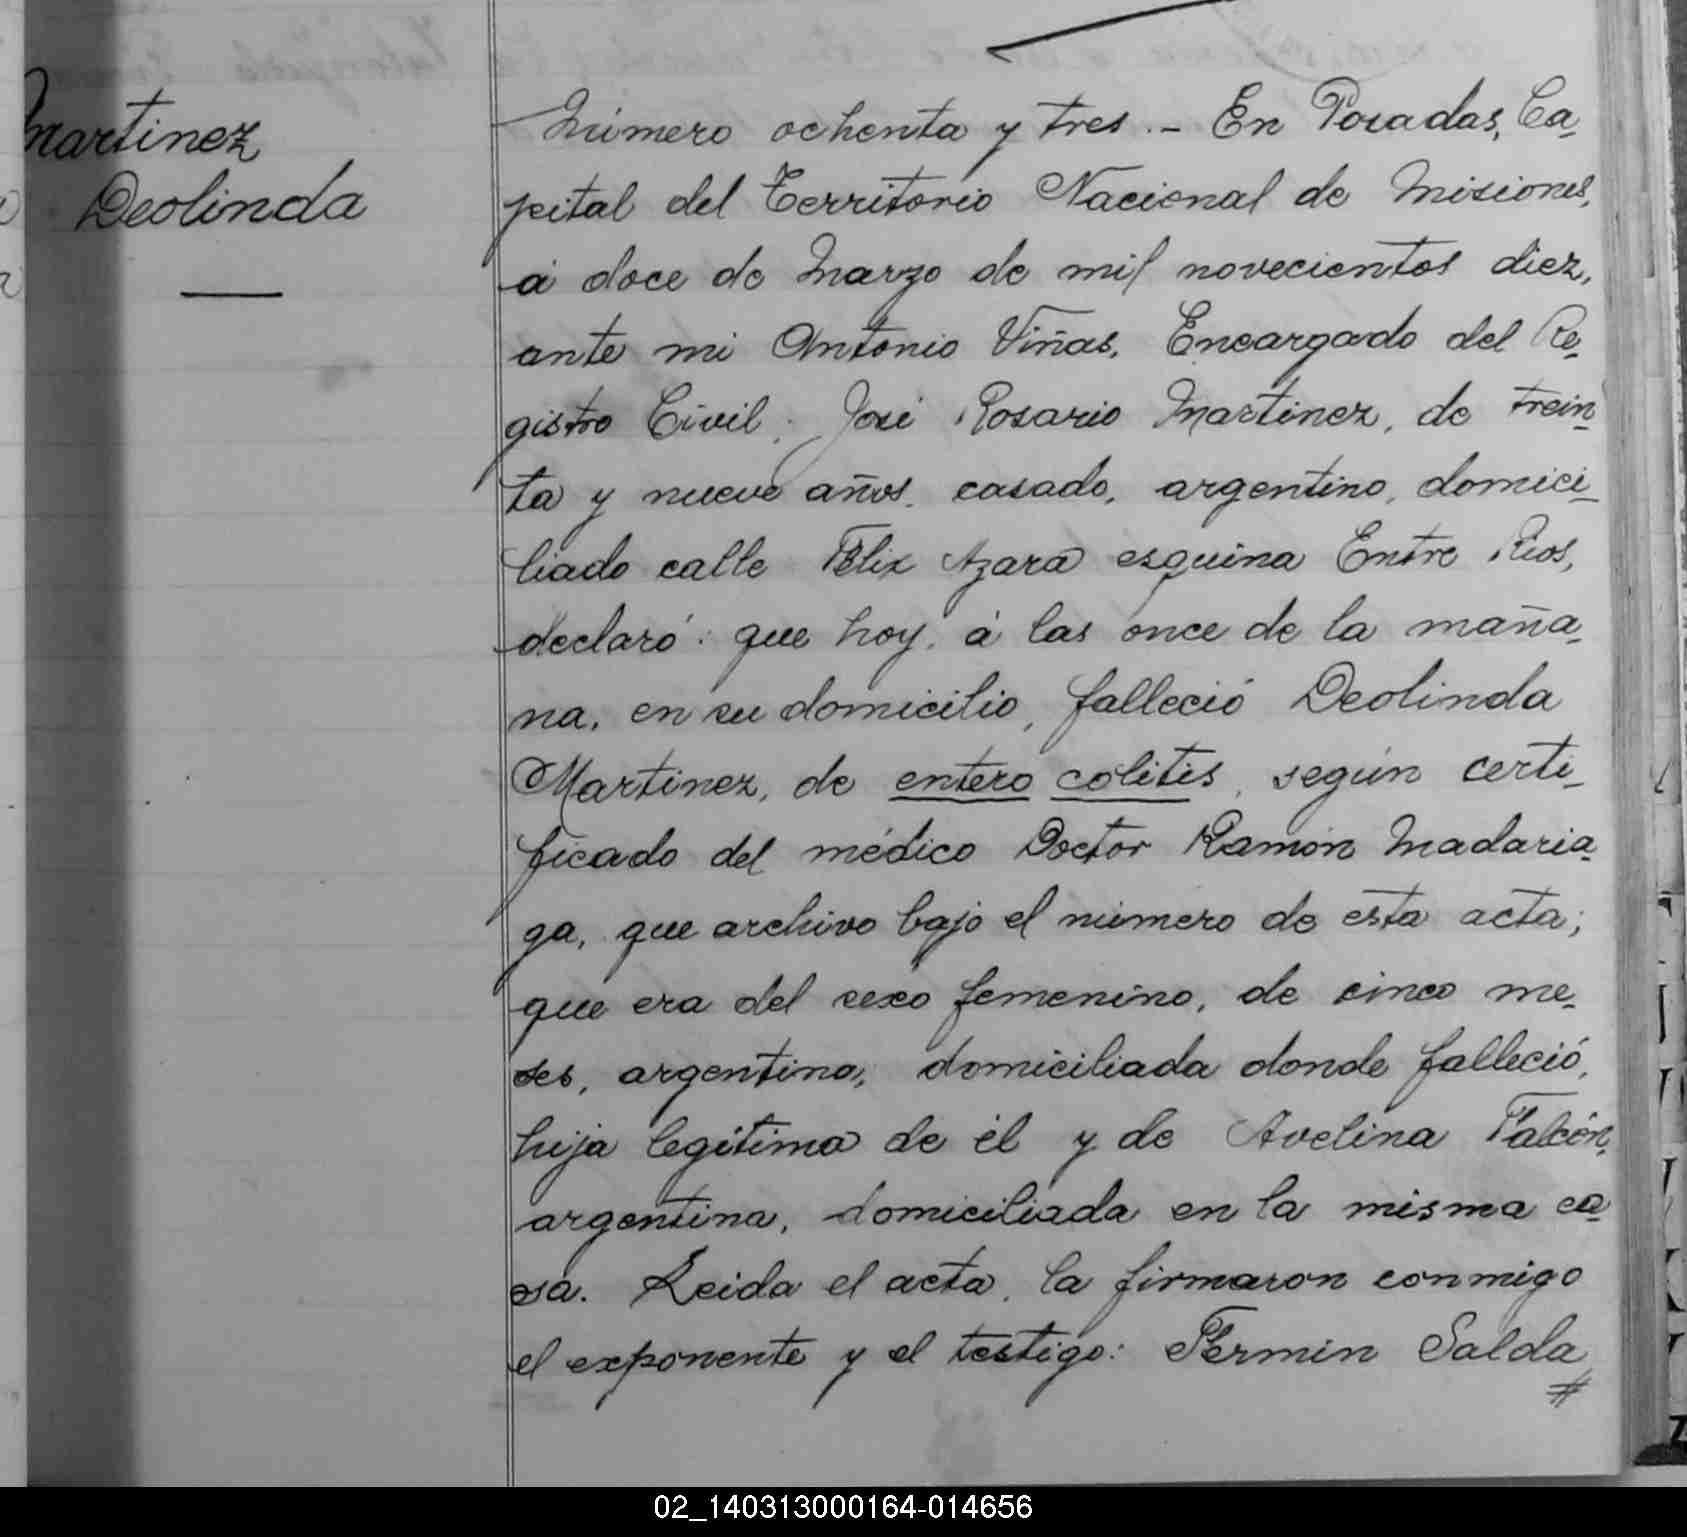 Martinez
Deolinda
Número ochenta y tres.- En Posadas, Ca-
pital del Territorio Nacional de Misiones,
á doce de Marzo de mil novecientos diez,
ante mi Antonio Viñas, Encargado del Re-
gistro Civil; José Rosario Martinez, de trein-
ta y nueve años, casado, argentino, domici-
liado calle Félix Azara esquina Entre Rios,
declaró: que hoy, á las once de la maña-
na, en su domicilio, falleció Deolinda
Martinez, de entero colitis, según certi-
ficado del médico Doctor Ramón Madaria-
ga, que archivo bajo el número de esta acta;
que era del sexo femenino, de cinco me-
ses, argentina, domiciliada donde falleció,
hija legítima de él y de Avelina Falcón,
argentina, domiciliada en la misma ca-
sa. Leida el acta, la firmaron conmigo
el exponente y el testigo: Fermin Salda
#
02_140313000164-014656